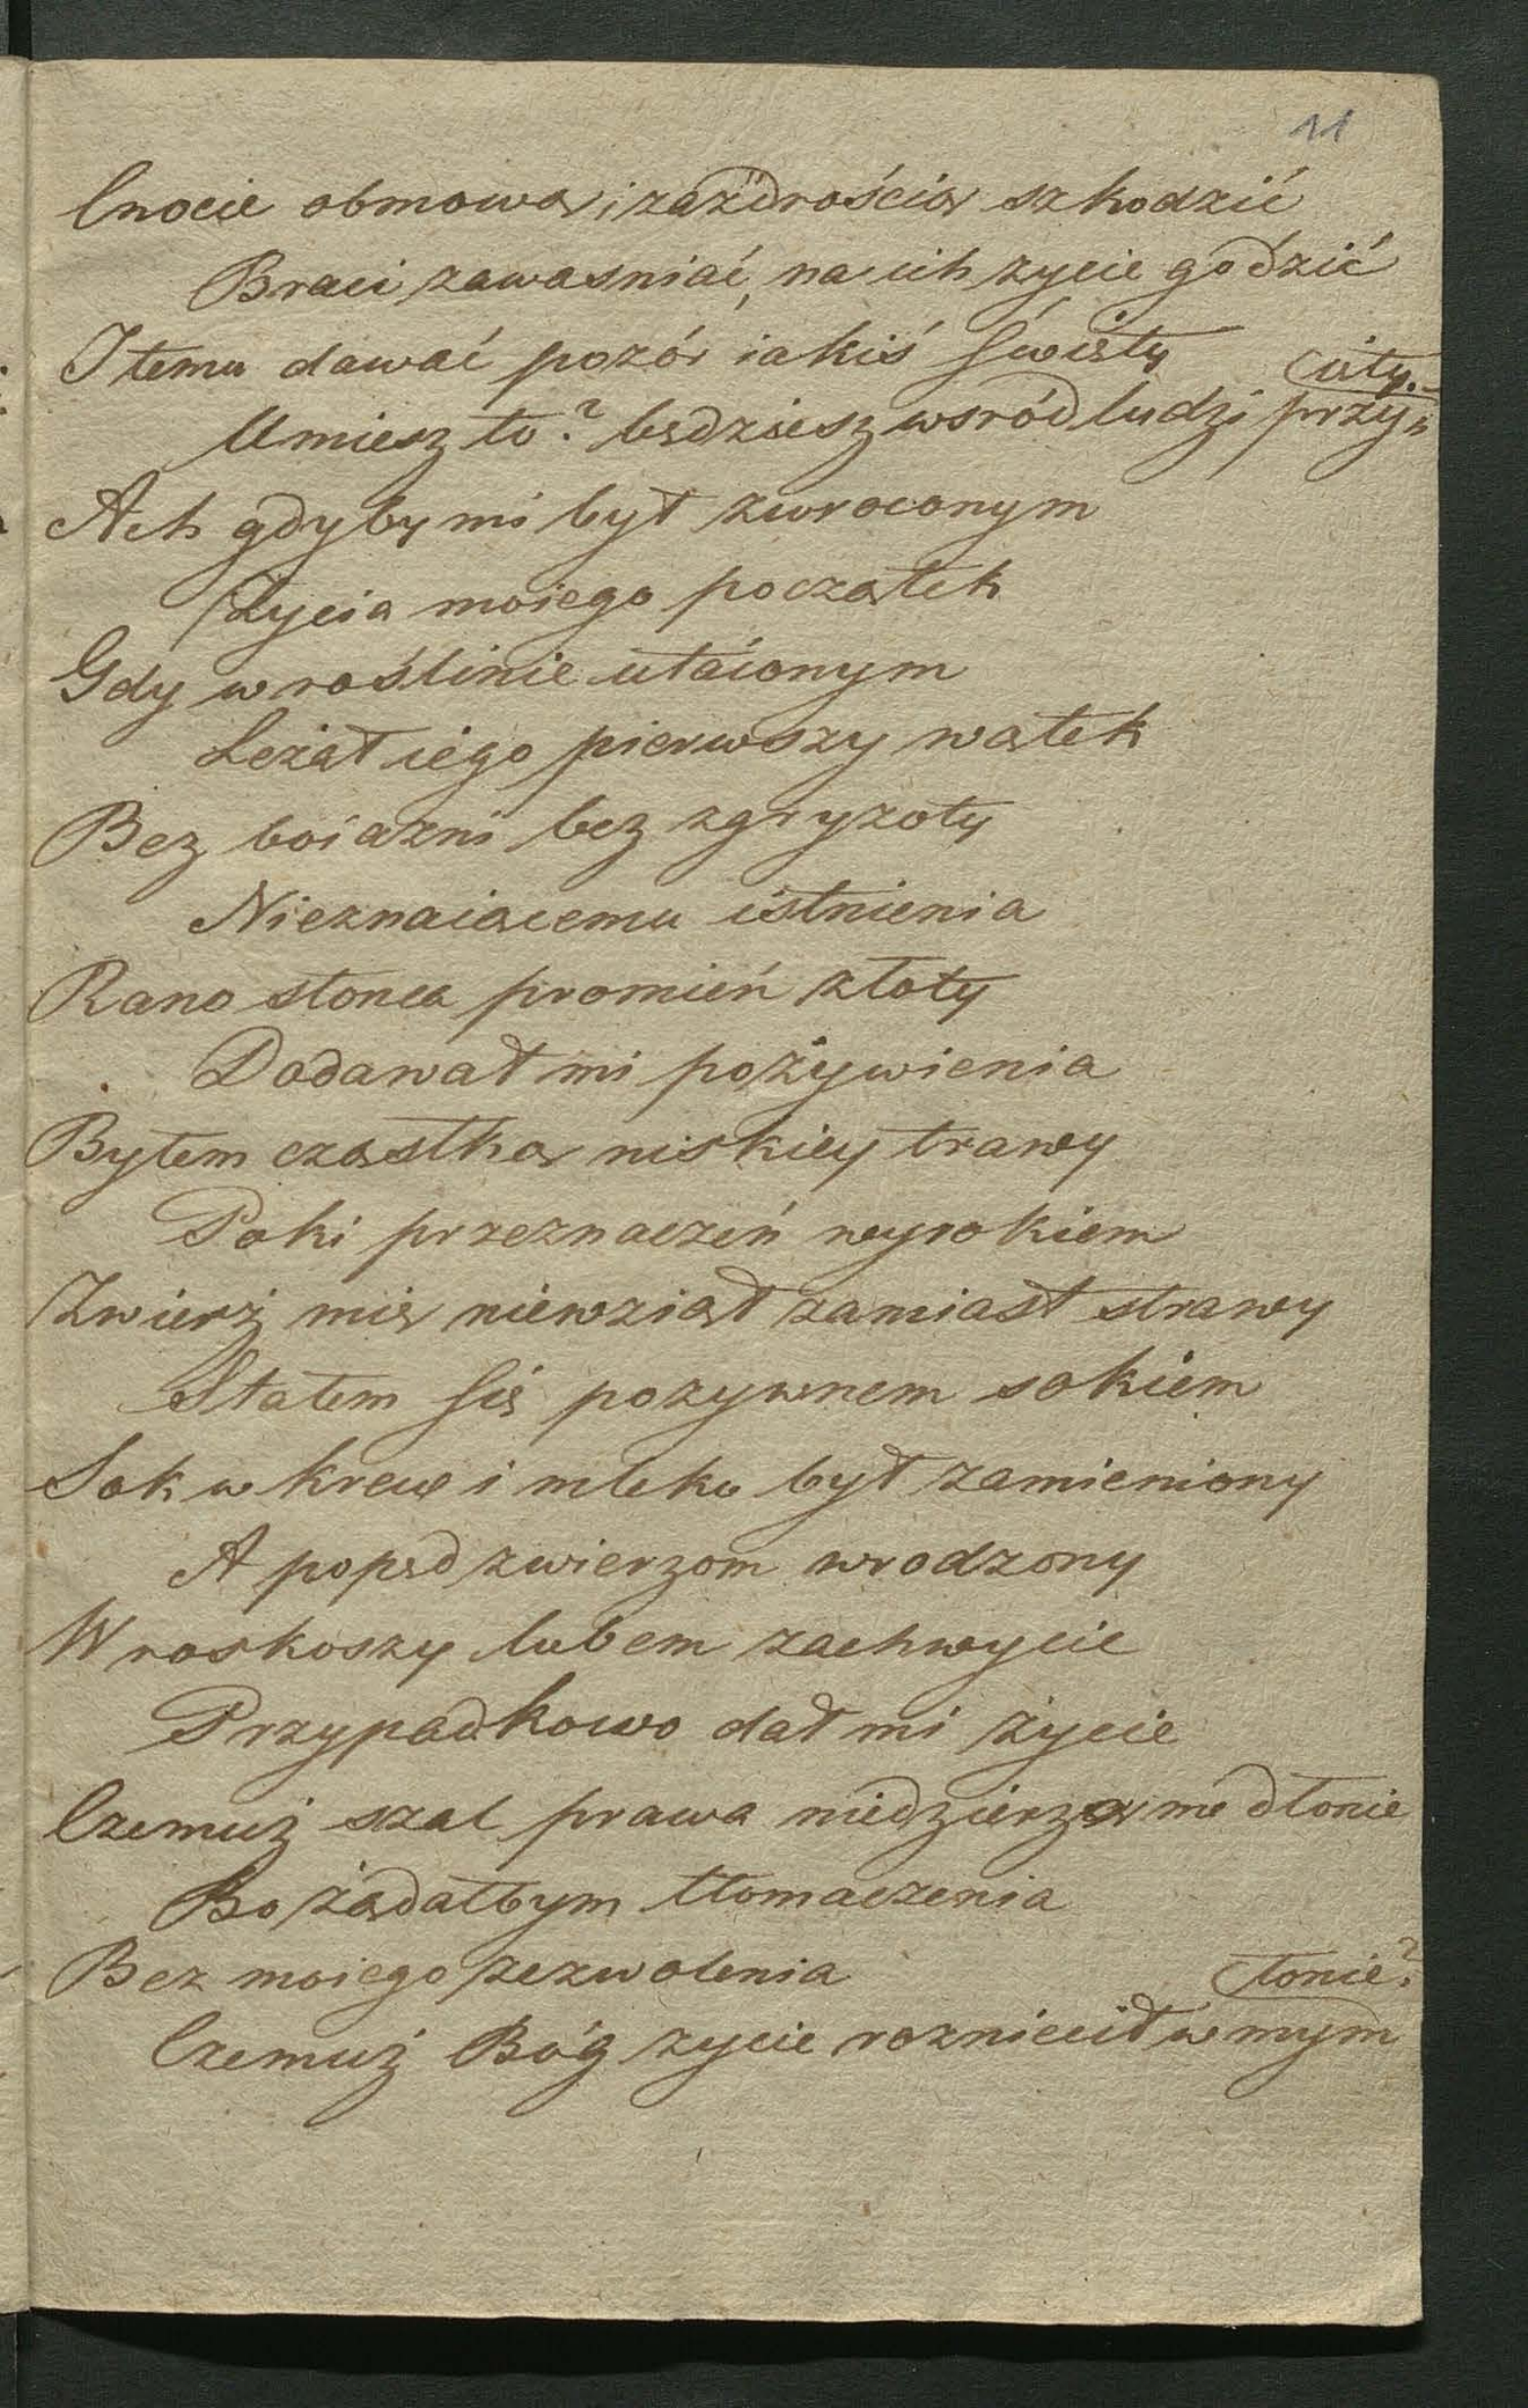 11
Cnocie obmową i zazdrością szkodzić
Braci zawasniać, na ich zycie godzić
I temu dawać pozór iakiś święty
Umiesz to? będziesz wsród ludzi przy=
ięty.
Ach gdyby mi był zwroconym
Życia moiego początek
Gdy w roślinie utaionym
Leżał iego pierwszy wątek
Bez boiazni bez zgryzoty
Nieznaiącemu istnienia
Rano słonca promień złoty
Dodawał mi pożywienia
Byłem cząstką niskiey trawy
Poki przeznaczeń wyrokiem
Zwierż mię niewziął zamiast strawy
Stałem się pozywnem sokiem
Sok w krew i mleko był zamieniony
A popęd zwierzom wrodzony
W roskoszy lubem zachwycie
Przypadkowo dał mi życie
Czemuż szal prawa niedzierzą me dłonie
Bo żądałbym tłomaczenia
Bez moiego zezwolenia
Czemuż Bóg zycie rozniecił w mym
łonie?